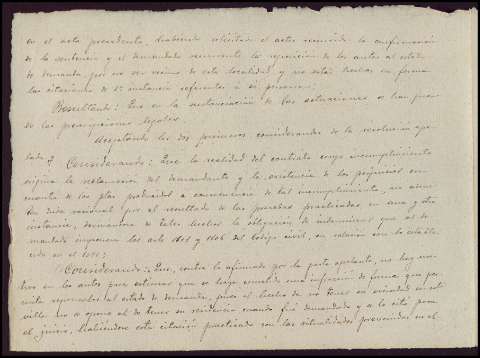 en el acta precedente, habiendo solicitado el actor recurrido la confirmación
de la sentencia y el demandado recurrente la reposición de los autos al estado
de demanda, por no ser vecino de esta localidad y no estar hechas en forma
las citaciones de 2ª instancia referentes á su persona;
Resultando: Que en la sustanciación de las actuaciones se han guarda-
do las prescripciones legales.
Aceptando los dos primeros considerandos de la resolución ape-
lada y Considerando: Que la realidad del contrato cuyo incumplimiento
origina la reclamación del demandante y la existencia de los perjuicios en
cuantía de los ptas producidos a consecuencia de tal incumplimiento, no ofrece
duda racional por el resultado de las pruebas practicadas en una y otra
instancia, derivándose de tales hechos la obligación de indemnizar que al de-
mandado imponen los arts 1101 y 1106 del Código civil, en relación con lo estable-
cido en el 1091;
Considerando: Que, contra lo afirmado por la parte apelante, no hay mo-
tivo en los autos para estimar que se haya cometido una infracción de forma que per-
mita reponerlos al estado de demanda, pues el hecho de no tener su vecindad en esta
villa no se opone al de tener su residencia cuando fué demandado y a la cita para
el juicio, habiéndose esta citación practicado con las formalidades prevenidas en el